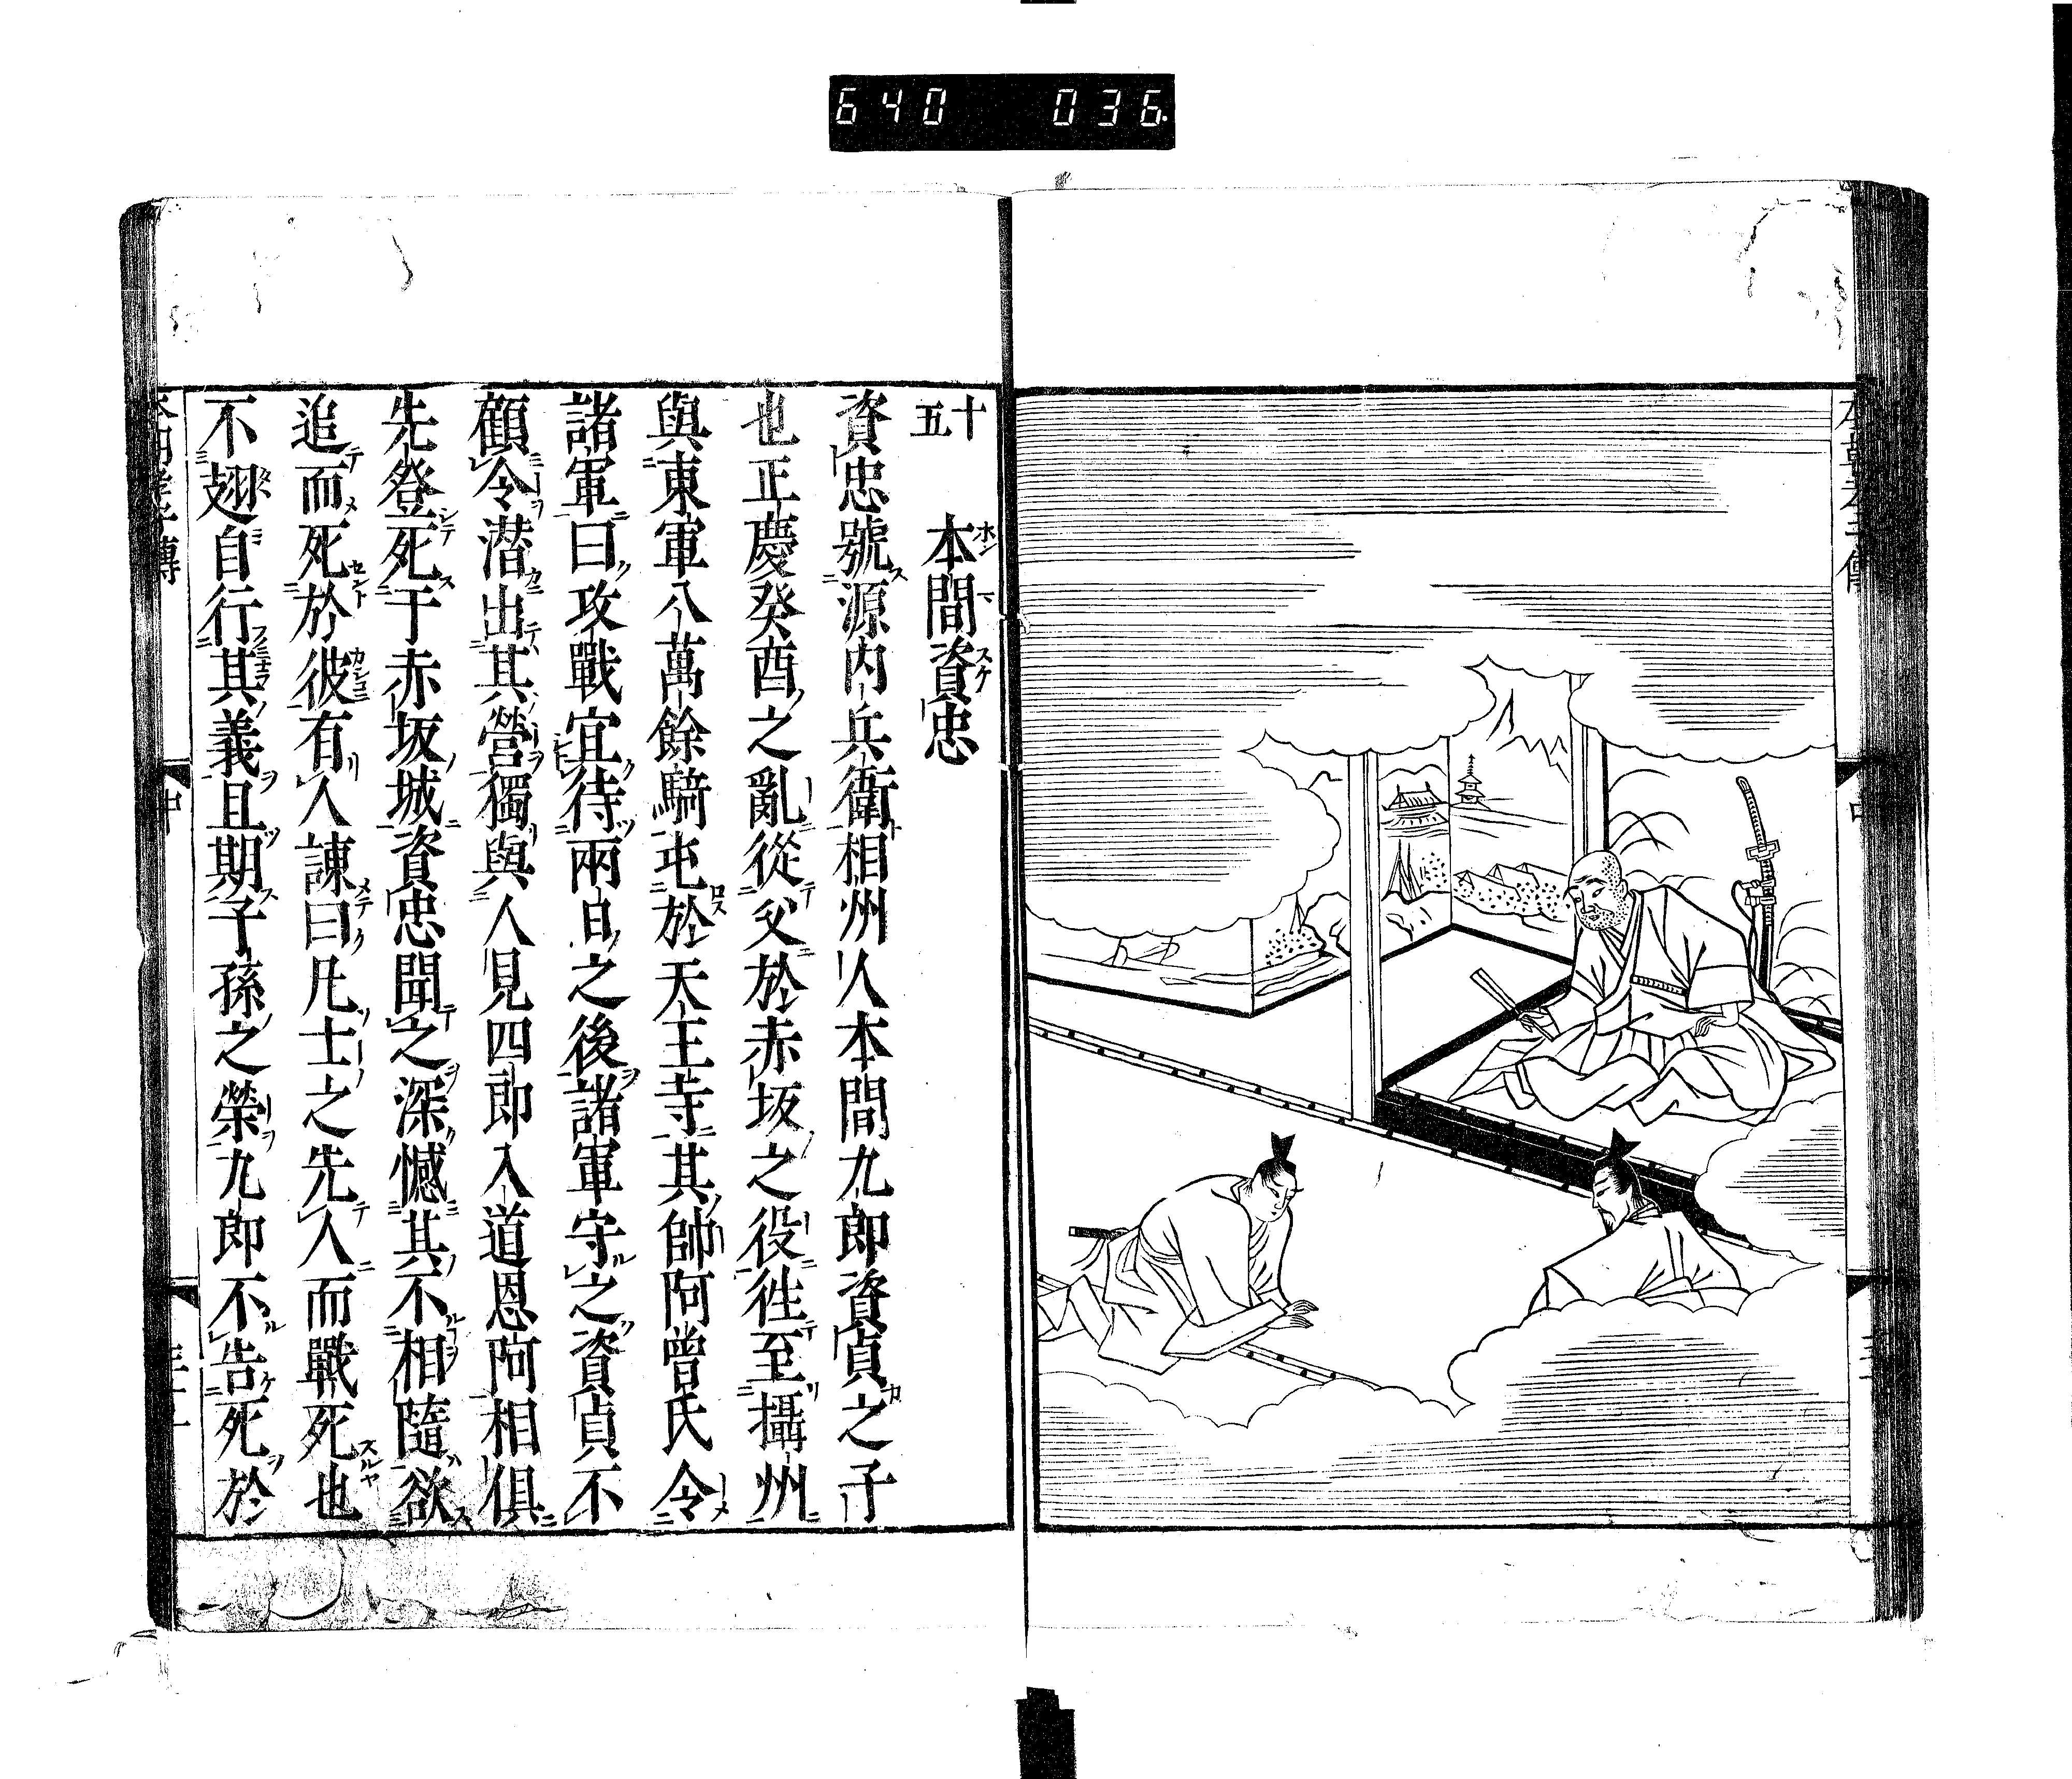 640 036
十五
本間資忠
資忠號源内兵衛相州人本間九郎資貞之子
也正慶癸酉之亂從父於赤坂之役徃至攝州
與東軍八萬餘騎屯於天王寺其帥阿曽氏令
諸軍曰攻戰宜待兩日之後諸軍守之資貞不
顧令潜出其營獨與人見四郎入道恩阿相俱
先登死于赤坂城資忠聞之深憾其不相隨欲
追而死於彼有人諫曰凡士之先人而戰死也
不翅自行其義且期子孫之榮九郎不告死於
中